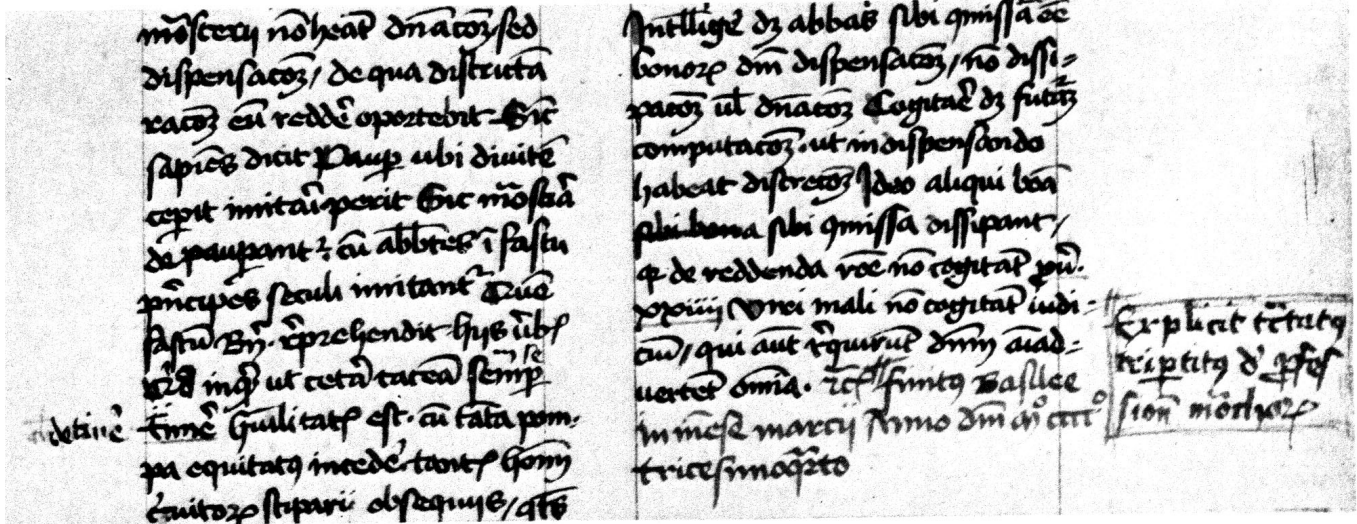 mr̄osterij nō heāt dn̄acōꝫ sed
dispensacōꝫ / de qua districtā
racōꝫ eū reddē oportebit Sic
sapiēs dicit Paup̲ ubi diuitē
cepit imitari perit Sic mr̄osteā
de pauperant᷑ ⁊ cū abb̄tes ī fastu
pn̄cipes seculi imitant᷑ Que
fastū Bn̄. rep̄rehendit hijs ūbꝭ
inq̄ ut cetā taceā
detinē timē hūilitatꝭ est. cū tāta pom-
pa equitatꝰ incedē. tantꝭ hoīm
stipari obsequijs /
Intellige dꝫ abbas sibi ꝯmissā eē
bonoꝝ dn̄i dispensacōꝫ / nō dissi-
pacōꝫ ul̄ dn̄acōꝫ Cogitare dꝫ futurā
computacōꝫ. ut in dispensando
habeat discrecōꝫ Ideo aliqui bōa
sibi bona sibi ꝯmissa dissipant /
qꝛ de reddenda rōe nō cogitāt ꝓū.
xxviii Viri mali nō cogitāt iudi-
ciū / qui aūt reqūirūt dnm̄ aīad-
vertēt omīa. ⁊cꝭ finitꝰ Basilee
in mēse marcij Anno dn̄i mº ccccº
tricesimoqºrto
Explicit tr̄ctatꝰ
tripertitꝰ de ꝓfes
sion̄ mōchoꝝ